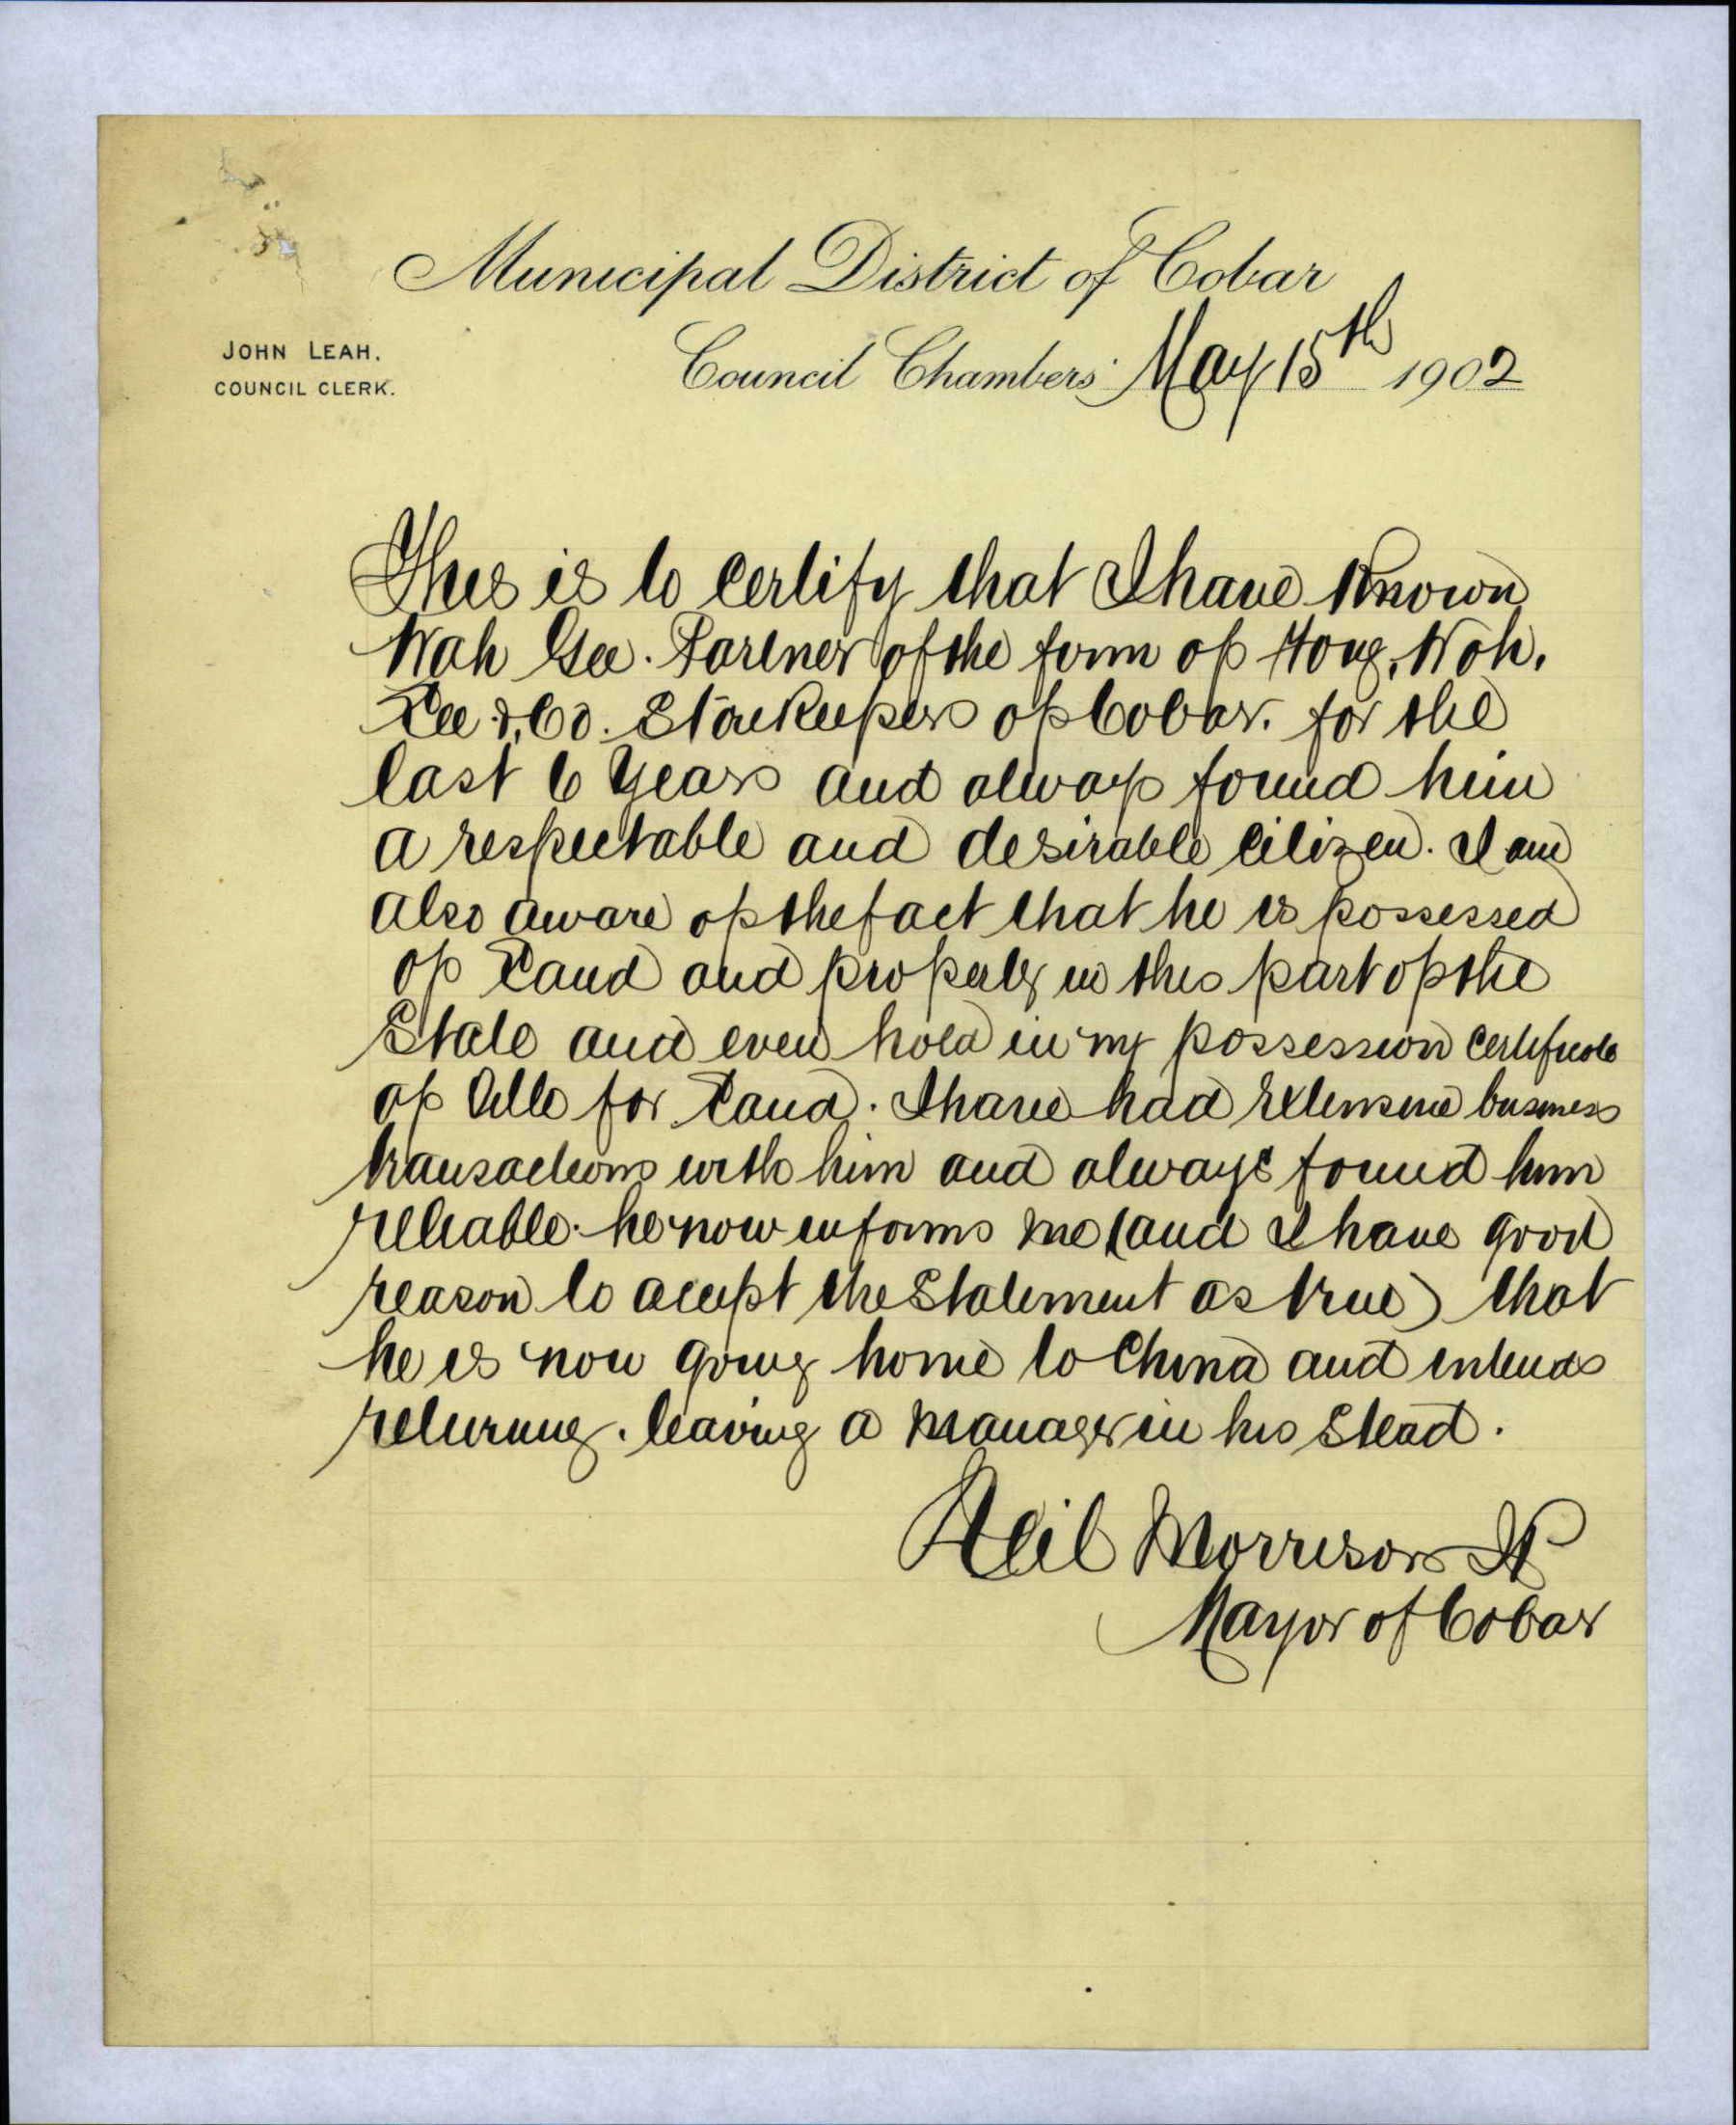 Municipal District of Cobar
JOHN LEAH.
COUNCIL CLERK.
Council Chambers May 15th 1902
This is to certify that I have Known
Wah Gee. Partner of the firm of Hong. Wah.
Lee & Co. Storekeepers of Cobar. for the
last 6 Years and always found him
a respectable and desirable citizen. I am
also aware of the fact that he is possessed
of Land and property in this part of the
State and even hold in my possession certificate
of title for Land. I have had extensive business
transactions with him and always found him
reliable. he now informs me (and I have good
reason to accept the Statement as true) that
he is now going home to China and intends
returning. leaving a Manager in his Stead.
Neil Morrison JP
Mayor of Cobar